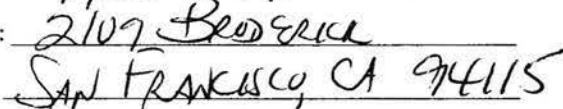 : 2109 BRODERICK
SAN FRANCISCO, CA 94115